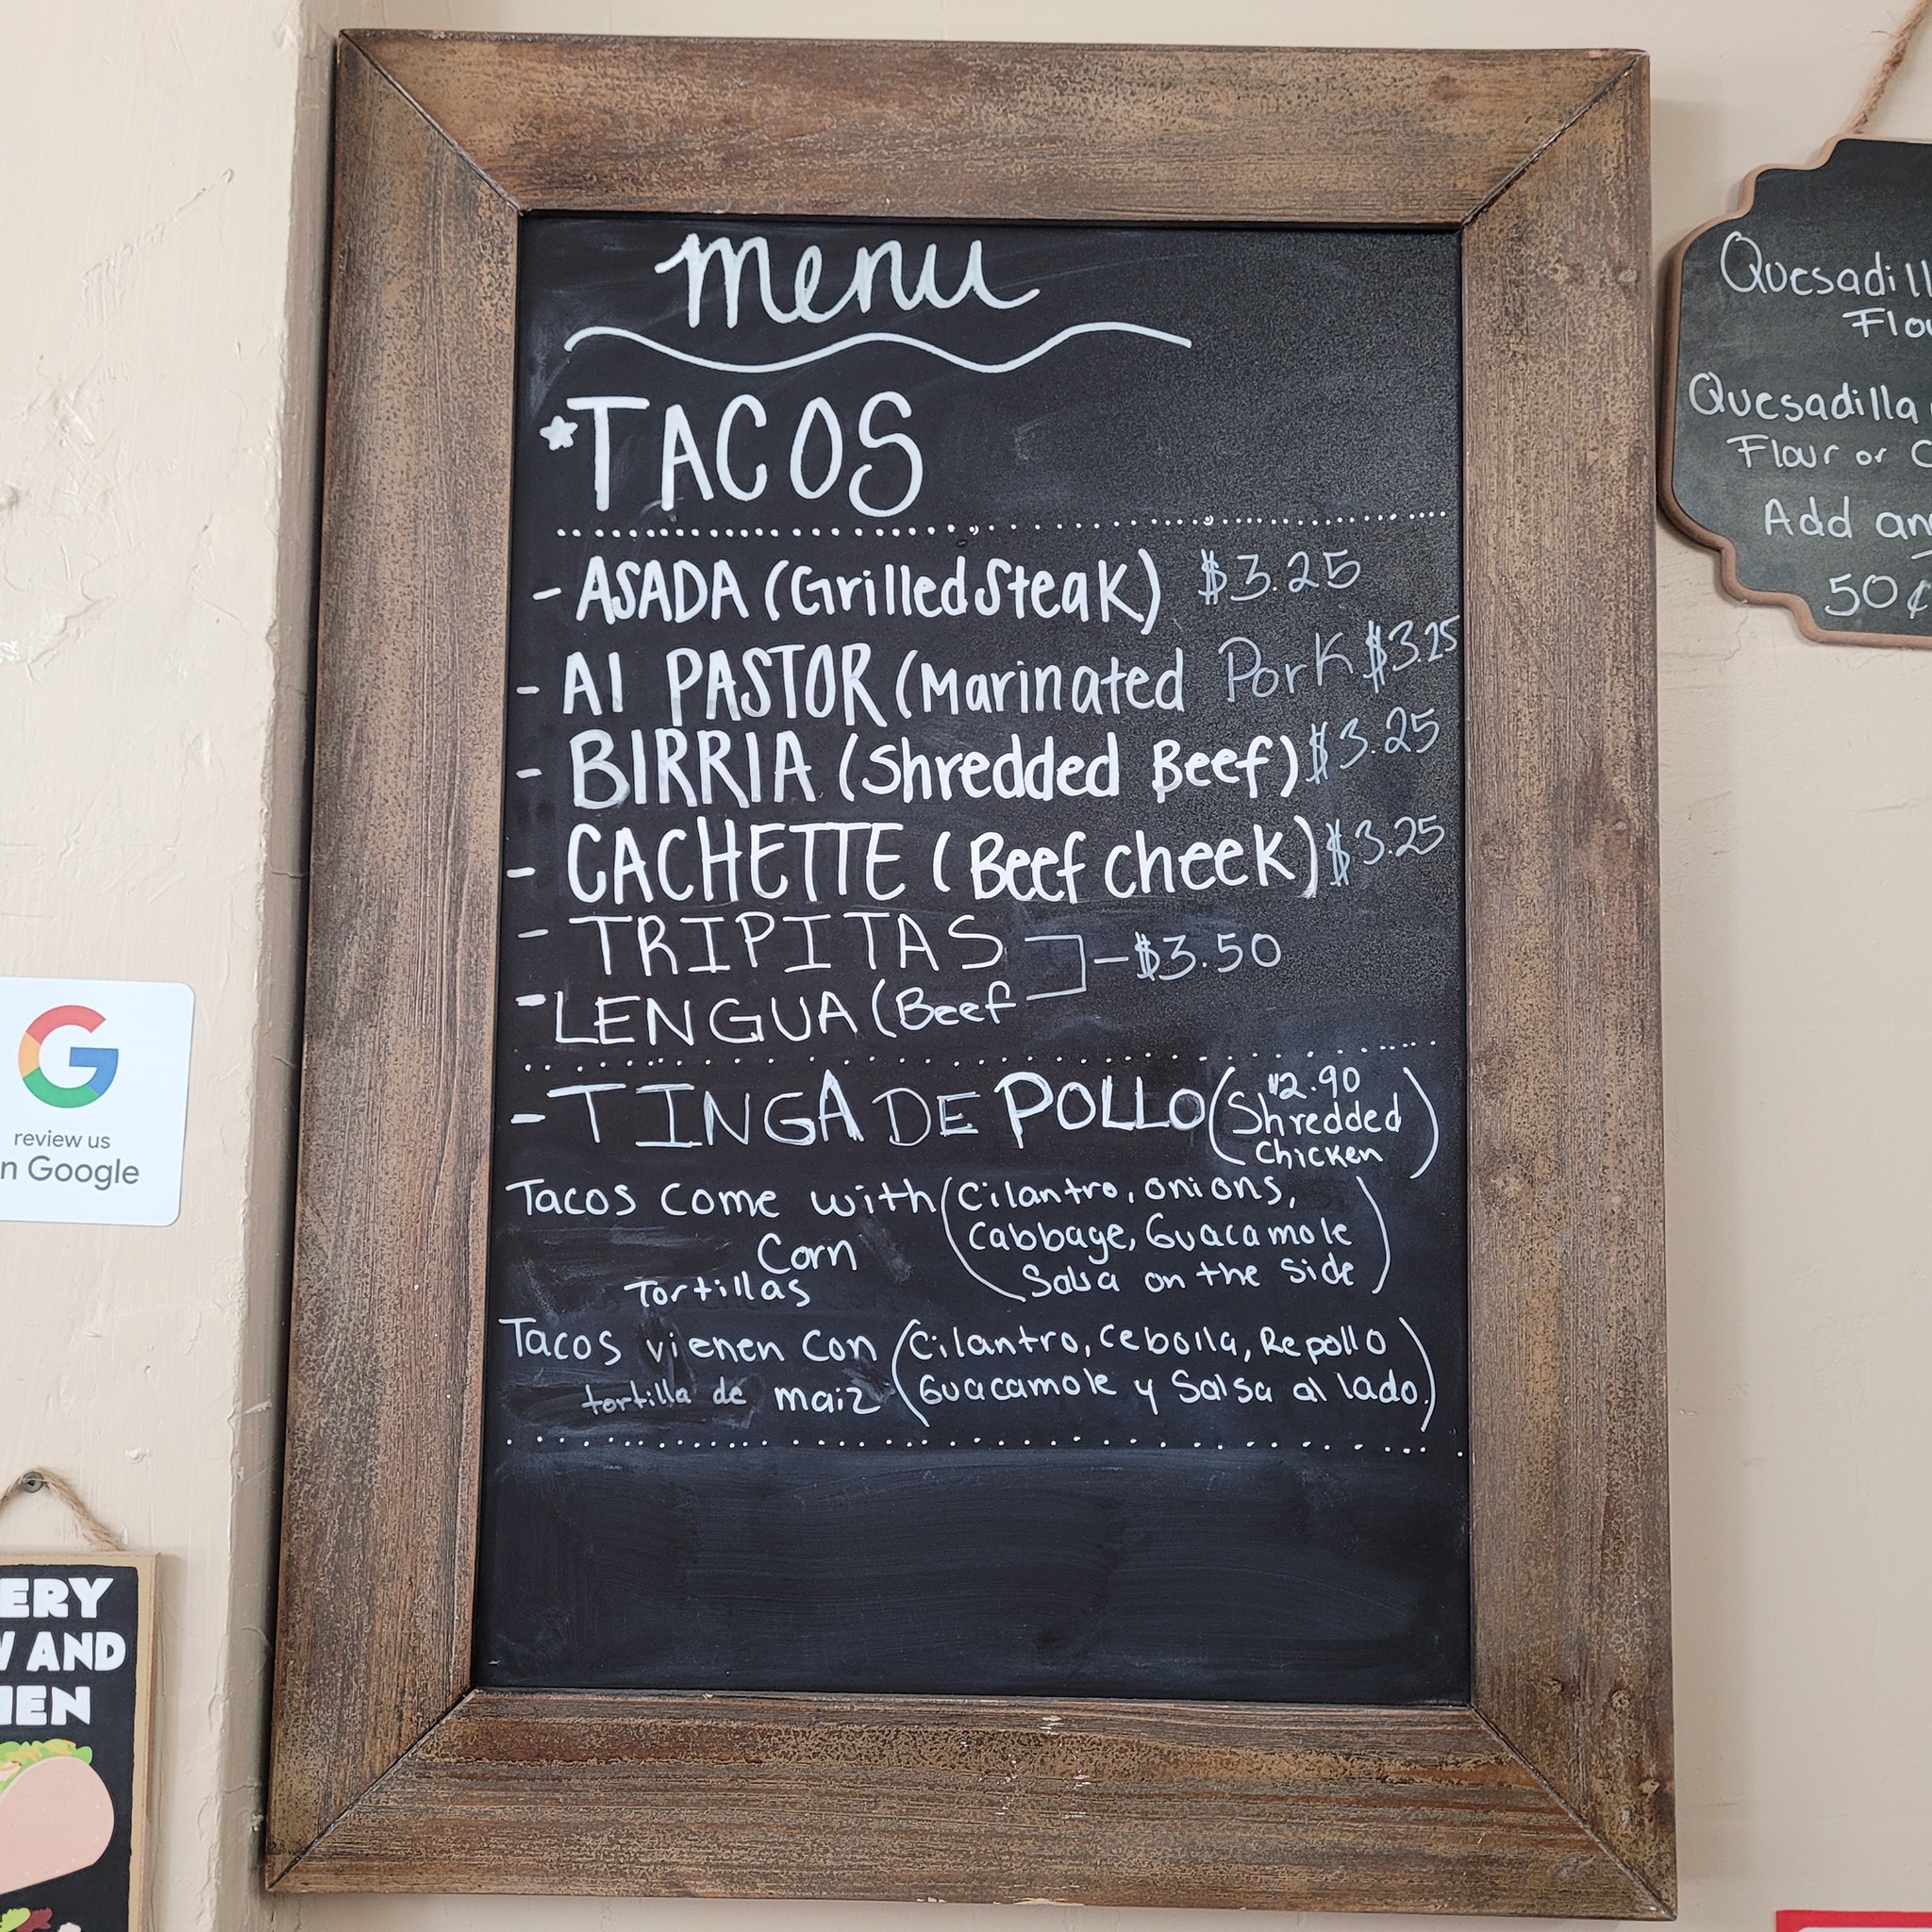 menu
*TACOS
- ASADA (Grilled Steak) $3.25
- Al PASTOR (Marinated Pork $3.25
- BIRRIA (Shredded Beef) $3.25
- CACHETTE (Beef cheek) $3.25
- TRIPITAS
- $3.50
- LENGUA (Beef
- TINGA DE POLLO (Shredded Chicken)
$2.90
Tacos come with (Cilantro, onions,
Cabbage, Guacamole
Corn
Salsa on the side)
Tortillas
Tacos vienen con (Cilantro, Cebolla, Repollo
tortilla de maiz Guacamole y Salsa al lado.)
Quesadill
Flou
Quesadilla
Flour or C
Add an
50¢
review us
n Google
ERY
W AND
HEN